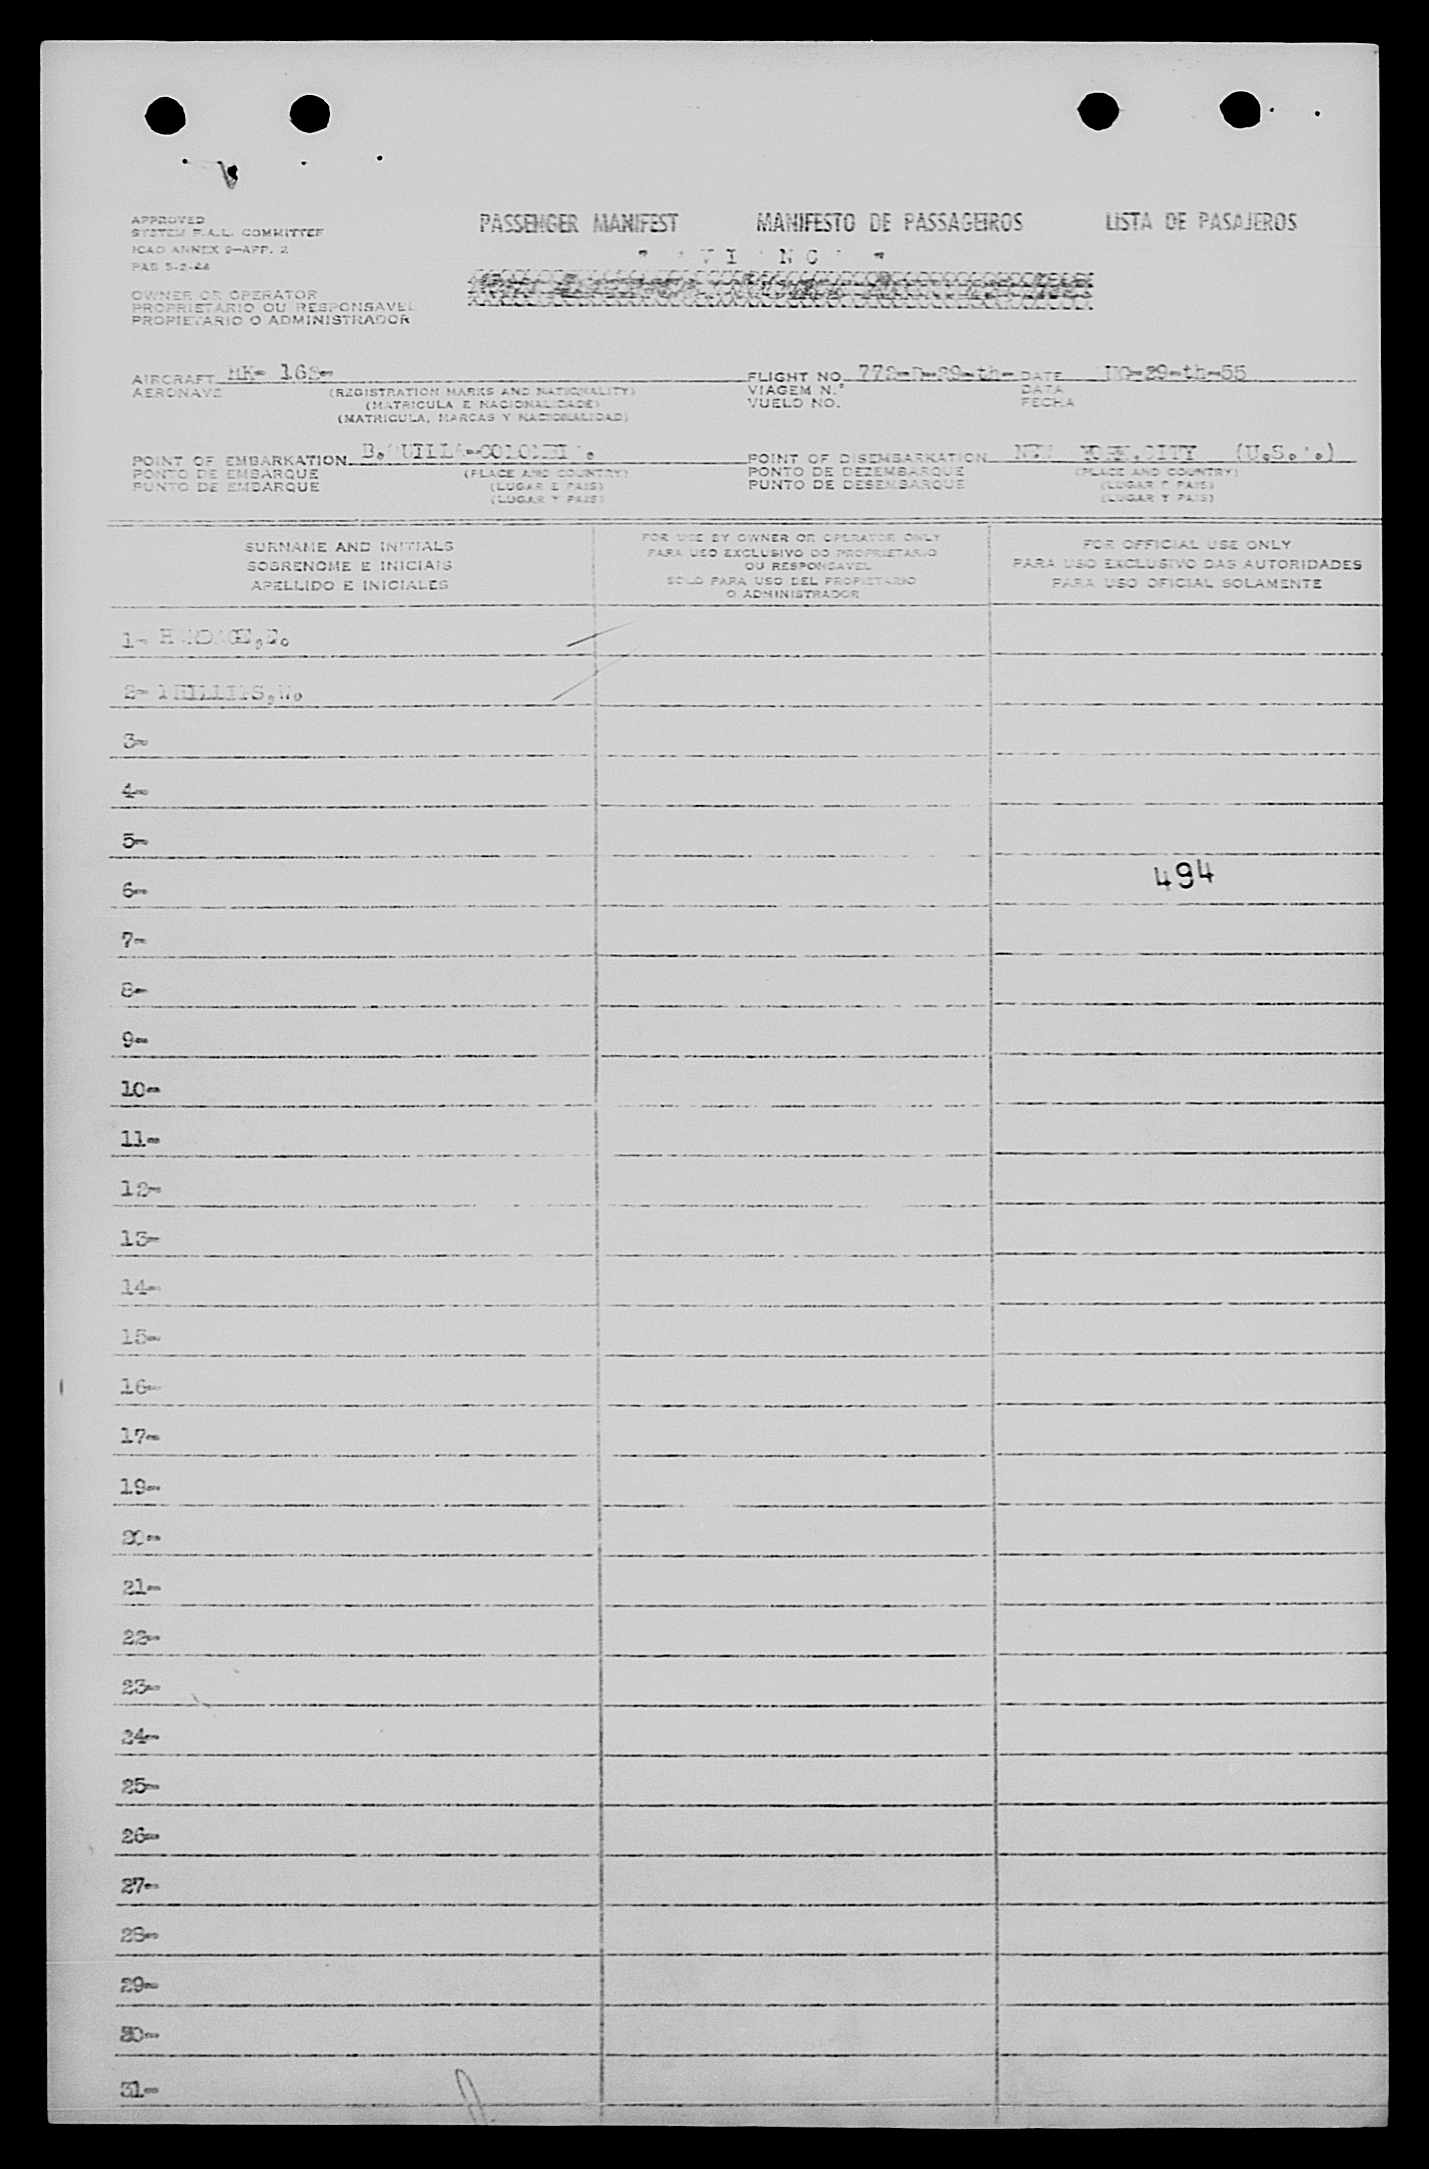 PASSENGER MANIFEST MANIFESTO DE PASSAGEIROS LISTA DE PASAJEROS
APPROVED
SYSTEM F.A.L. COMMITTEE
ICAO ANNEX 9—APP. 2
OWNER OR OPERATOR
PROPRIETARIO OU RESPONSAVEL
PROPIETARIO O ADMINISTRADOR
AIRCRAFT HK- FLIGHT NO. DATE
AERONAVE (REGISTRATION MARKS AND NATIONALITY) VIAGEM N.º DATA
(MATRICULA E NACIONALIDADE) VUELO NO. FECHA
(MATRICULA, MARCAS Y NACIONALIDAD)
POINT OF EMBARKATION POINT OF DISEMBARKATION NEW YORK.CITY (U.S.A.)
PONTO DE EMBARQUE (PLACE AND COUNTRY) PONTO DE DEZEMBARQUE (PLACE AND COUNTRY)
PUNTO DE EMBARQUE (LUGAR E PAIS) PUNTO DE DESEMBARQUE (LUGAR E PAIS)
(LUGAR Y PAIS) (LUGAR Y PAIS)
SURNAME AND INITIALS
SOBRENOME E INICIAIS
APELLIDO E INICIALES
FOR USE BY OWNER OR OPERATOR ONLY
PARA USO EXCLUSIVO DO PROPRIETARIO
OU RESPONSAVEL
SOLO PARA USO DEL PROPIETARIO
O ADMINISTRADOR
FOR OFFICIAL USE ONLY
PARA USO EXCLUSIVO DAS AUTORIDADES
PARA USO OFICIAL SOLAMENTE
1-
2- PHILLIPS,W.
3-
4-
5-
6- 494
7-
8-
9-
10-
11-
12-
13-
14-
15-
16-
17-
19-
20-
21-
22-
23-
24-
25-
26-
27-
28-
29-
30-
31-